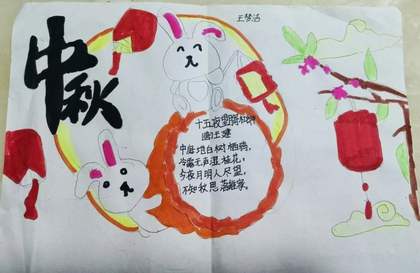 中秋
十五夜望
唐王建
中庭地白树栖鸦，
冷露无声湿桂花，
今夜月明人尽望，
不知秋思落谁家。